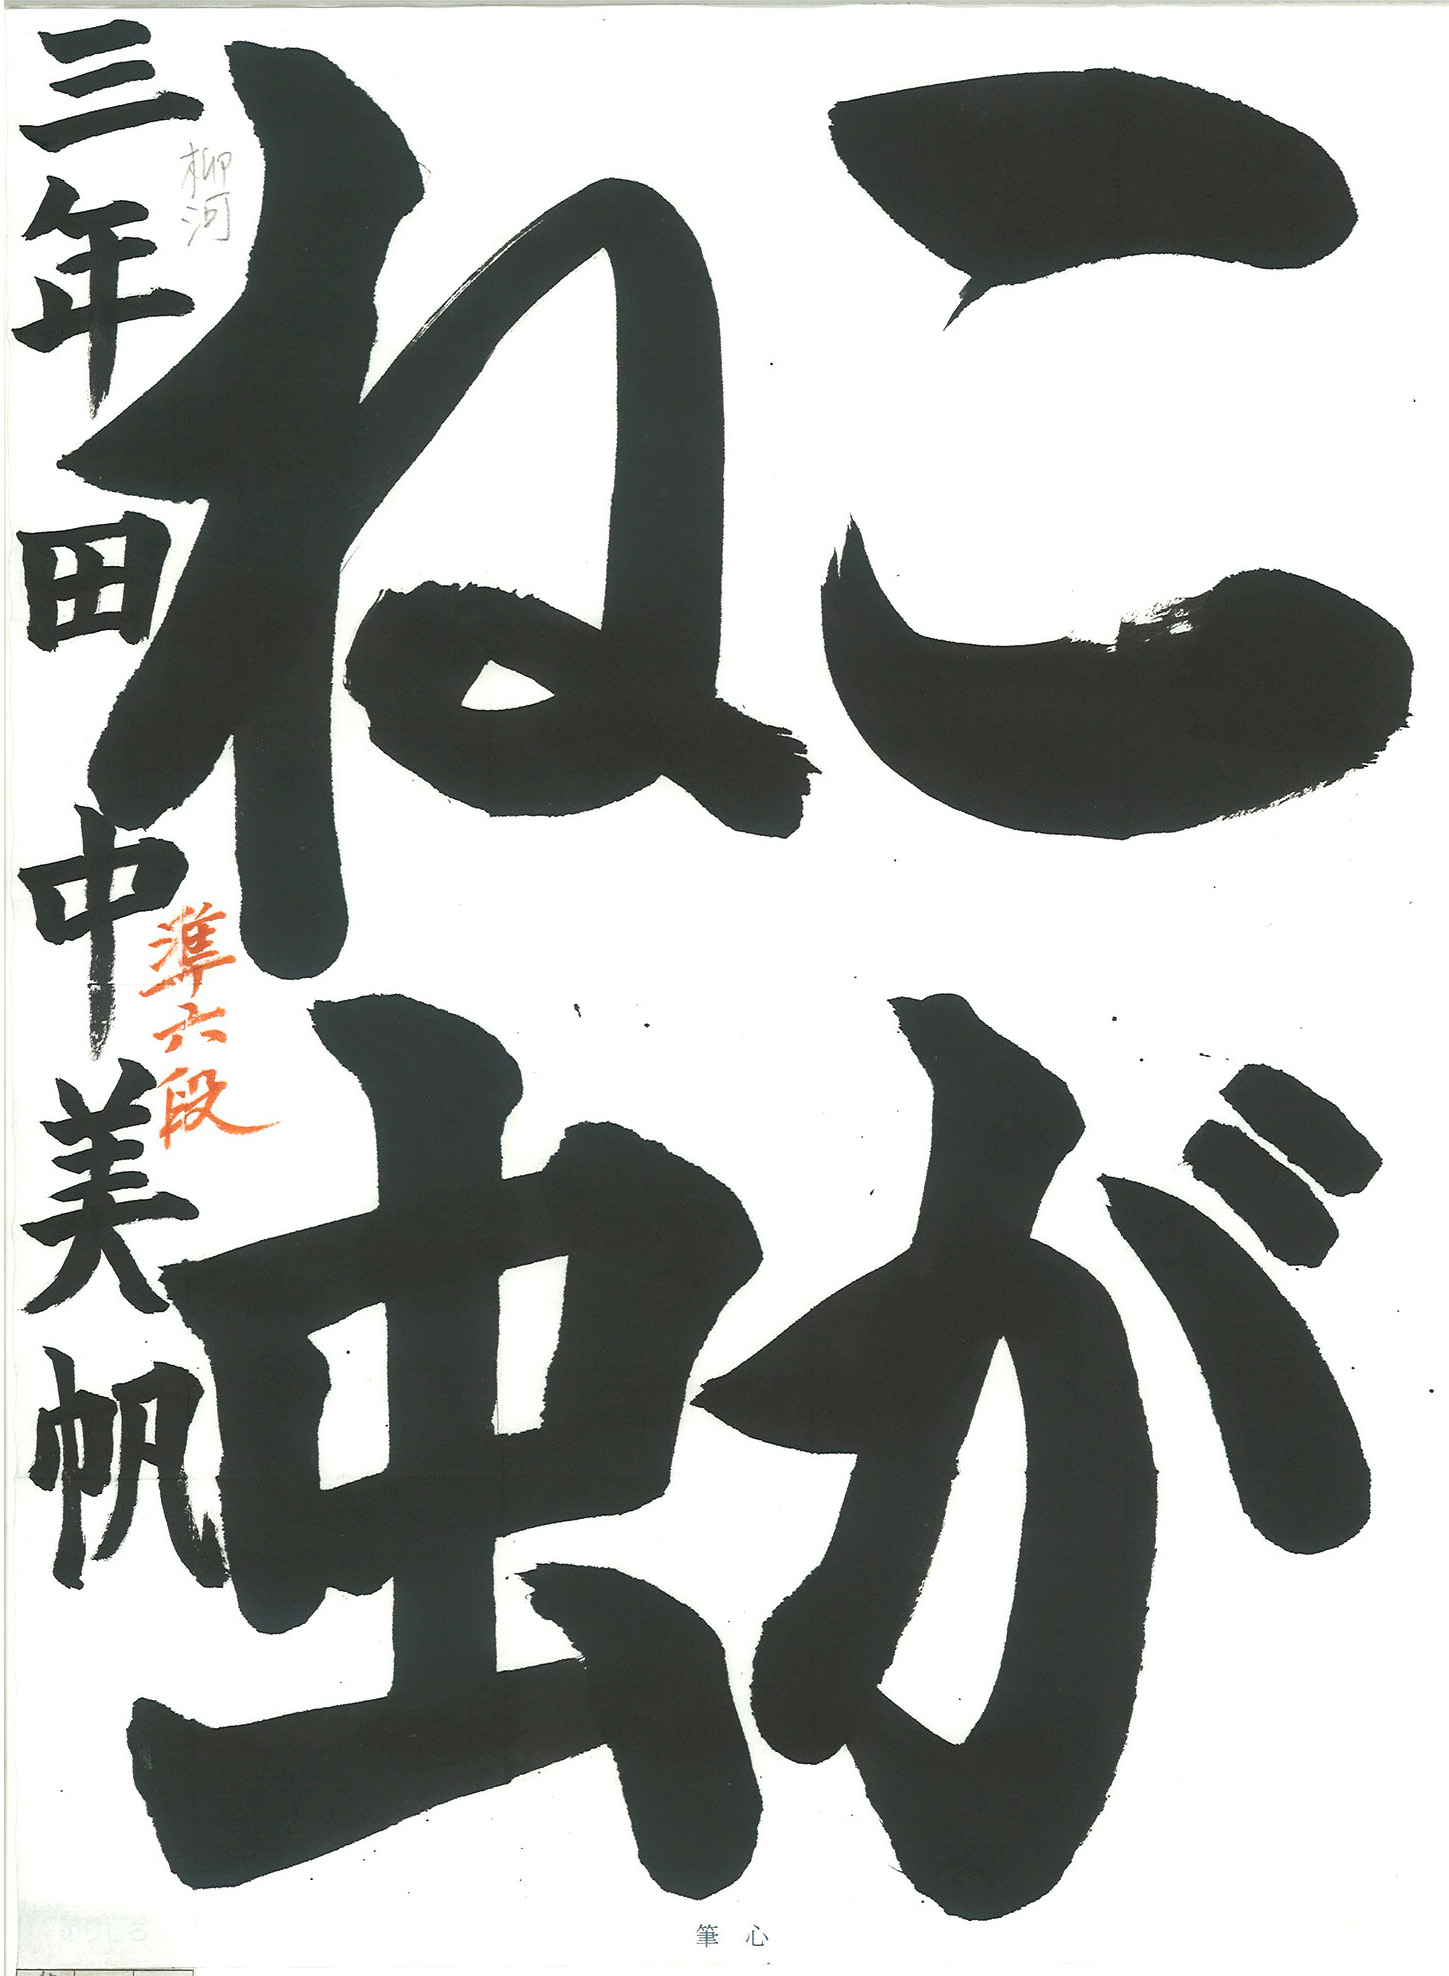 こが
ね虫
三年田中美帆
柳河
準六段
筆心